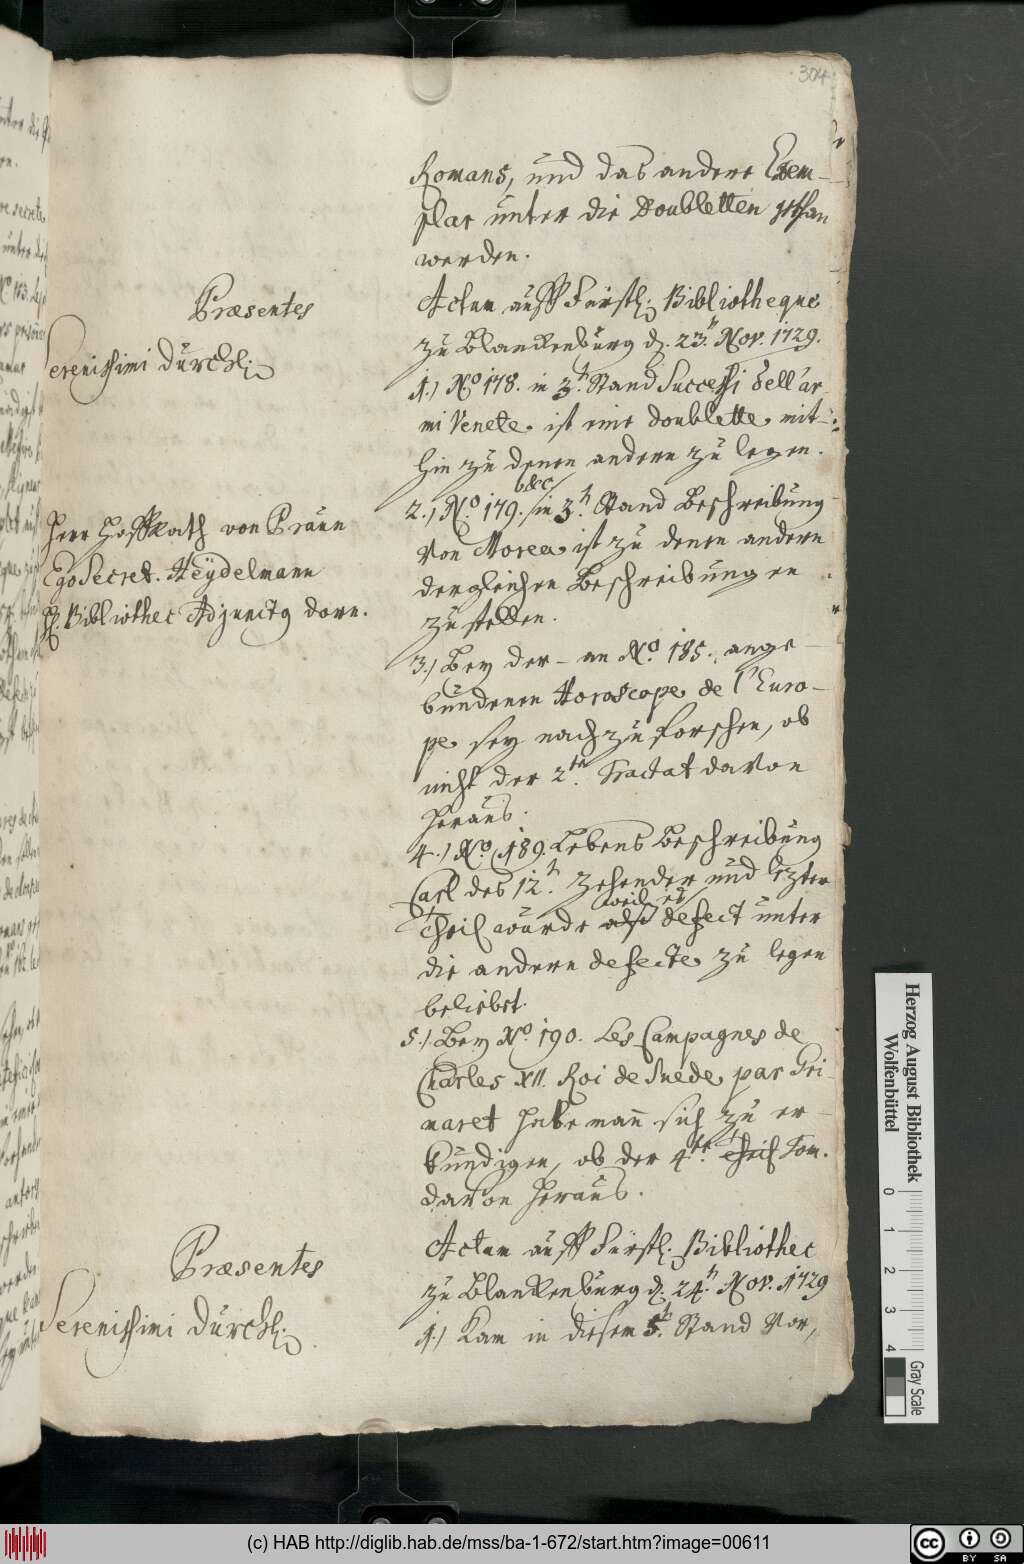 304
Romans, und das andere Exem-
plar unter die Doubletten gethan
werden.
Præsentes
Serenissimi Durchl.
Actum auff Fürstl. Bibliotheque
zu Blanckenburg d. 23.t Nov. 1729.
1.) No 178. in 3t. Stand Successi dell' ar-
mi Venete ist eine doublette mit-
hin zu denen andern zu legen.
Herr Hoffrath von Praun
Ego Secret. Heÿdelmann
H. Bibliothec Adjunctg Dorn.
2.) No. 179. b&c in 3t. Stand Beschreibung
von Morea ist zu denen andern
dergleichen Beschreibungen
zu stellen.
3.) Bey der - an No. 185. ange-
bundenen Horoscope de l'Euro-
pe sey nachzuforschen, ob
nicht der 2te. Tractat davon
heraus.
4.) No. 189. Lebens Beschreibung
Carl des 12t. Zehender und letzter
Theil wurde also weil er defect unter
die andern defecte zu legen
beliebet.
5.) Bey No. 190. Les Campagnes de
Charles XII. Roi de Suede par Gri-
maret habe man sich zu er-
kundigen, ob der 4te. Theil Tom.
davon heraus.
Præsentes
Serenissimi Durchl.
Actum auff Fürstl. Bibliothec
zu Blanckenburg d. 24t. Nov. 1729
1.) Kam in diesem 5t. Stand vor,
Herzog August Bibliothek
Wolfenbüttel
0 1 2 3 4
Gray Scale
(c) HAB http://diglib.hab.de/mss/ba-1-672/start.htm?image=00611
CC BY SA